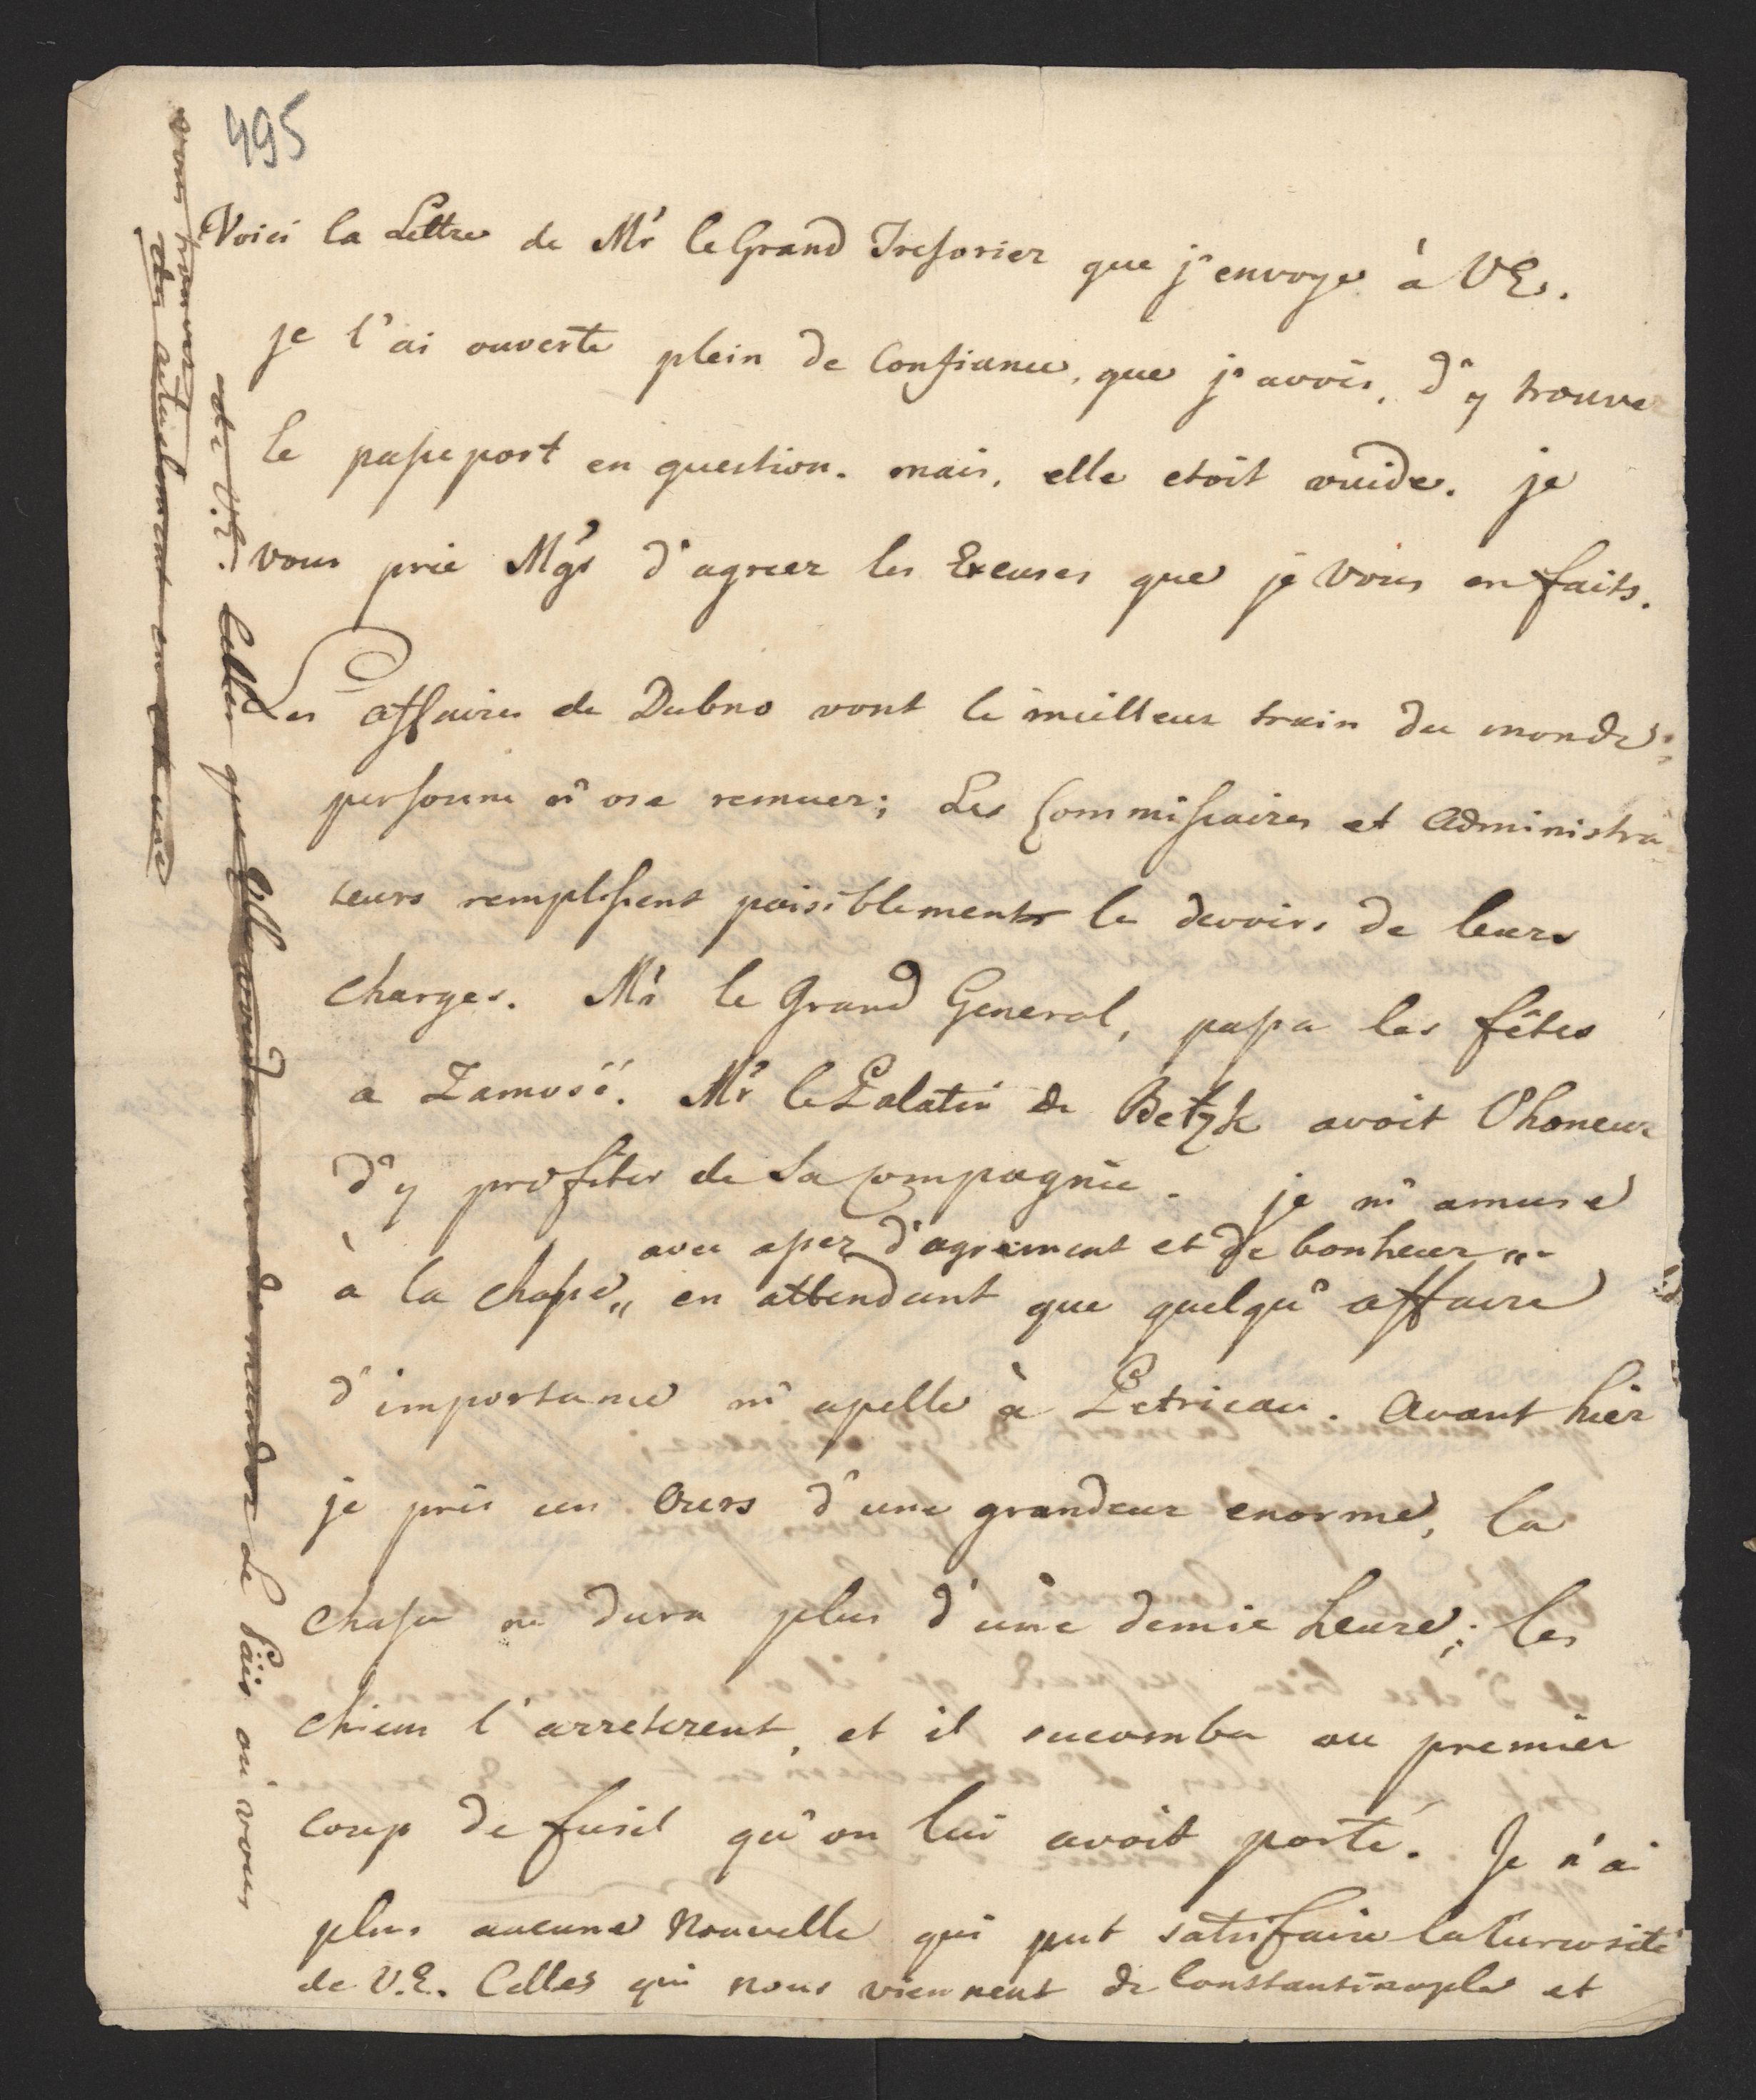 495
Voici la Lettre de Mr le Grand Tresorier que j'envoye à VE.
je l'ai ouverte plein de Confiance, que j'avois, d'y trouver
le passeport en question. mais, elle etoit vuide. je
vous prie Mgr d'agreer les Excuses que je vous en faits.
Les affaires de Dubno vont le meilleur train du monde;
personne n'ose remuer; Les Commissaires et Administra-
teurs remplissent paisiblement le devoirs de leurs
charges. Mr le Grand General, passa les fêtes
a Zamosc. Mr le Palatin de Betzk avoit l'honeur
d'y profiter de Sa Compagnie. je m'amuse
avec assez d'agrement et de bonheur „
à la chasse „ en attendant que quelqu'affaire
d'importance m'apelle à Petricau. Avant hier
je pris un Ours d'une grandeur enorme, la
chasse ne dura plus d'une demie heure; les
chiens l'arreterent, et il sucomba au premier
coup de fusil qu'on lui avoit porté. Je n'ai
plus aucune Nouvelle qui put satisfaire la Curiosité
de V.E. Celles qui nous viennent de Constantinople et
de V.E. Celles que
me demander de Païs où vous
vous trouvez
actuelement en